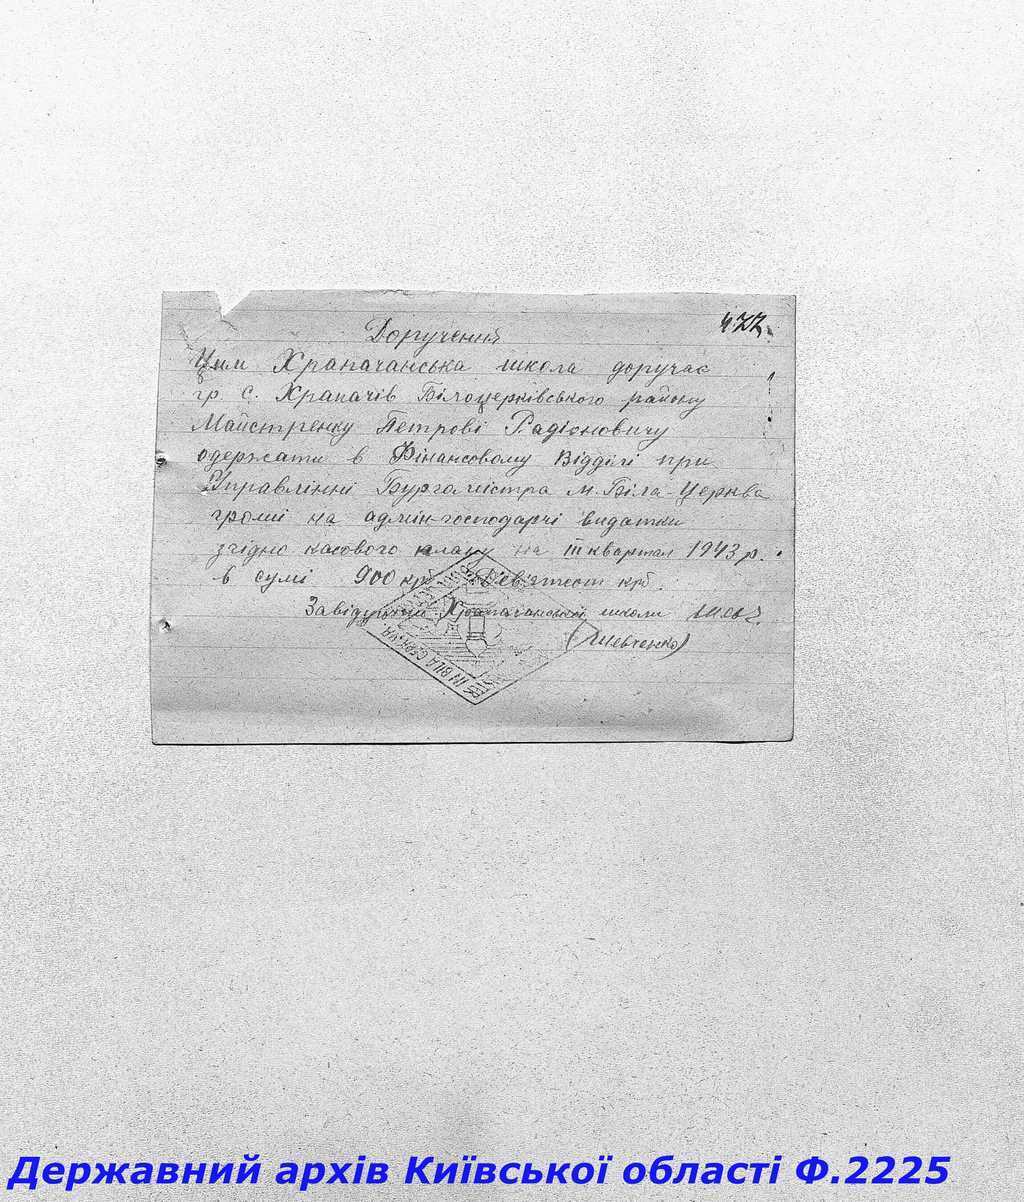 422.
Доручення
Цим Храпачанська школа доручає
гр. с. Храпачів Білоцерківського району
Майстренку Петрові Радіоновичу
одержати в Фінансовому Відділі при
Управлінні Бургомістра м. Біла-Церква
гроші на адмін-господарчі видатки
згідно касового плану на III квартал 1943 р.
в сумі 900 крб Дев'ятсот крб.
Завідуючий Храпачанської школи
(Шевченко)
IN BILA CERKVA
Державний архів Київської області Ф.2225